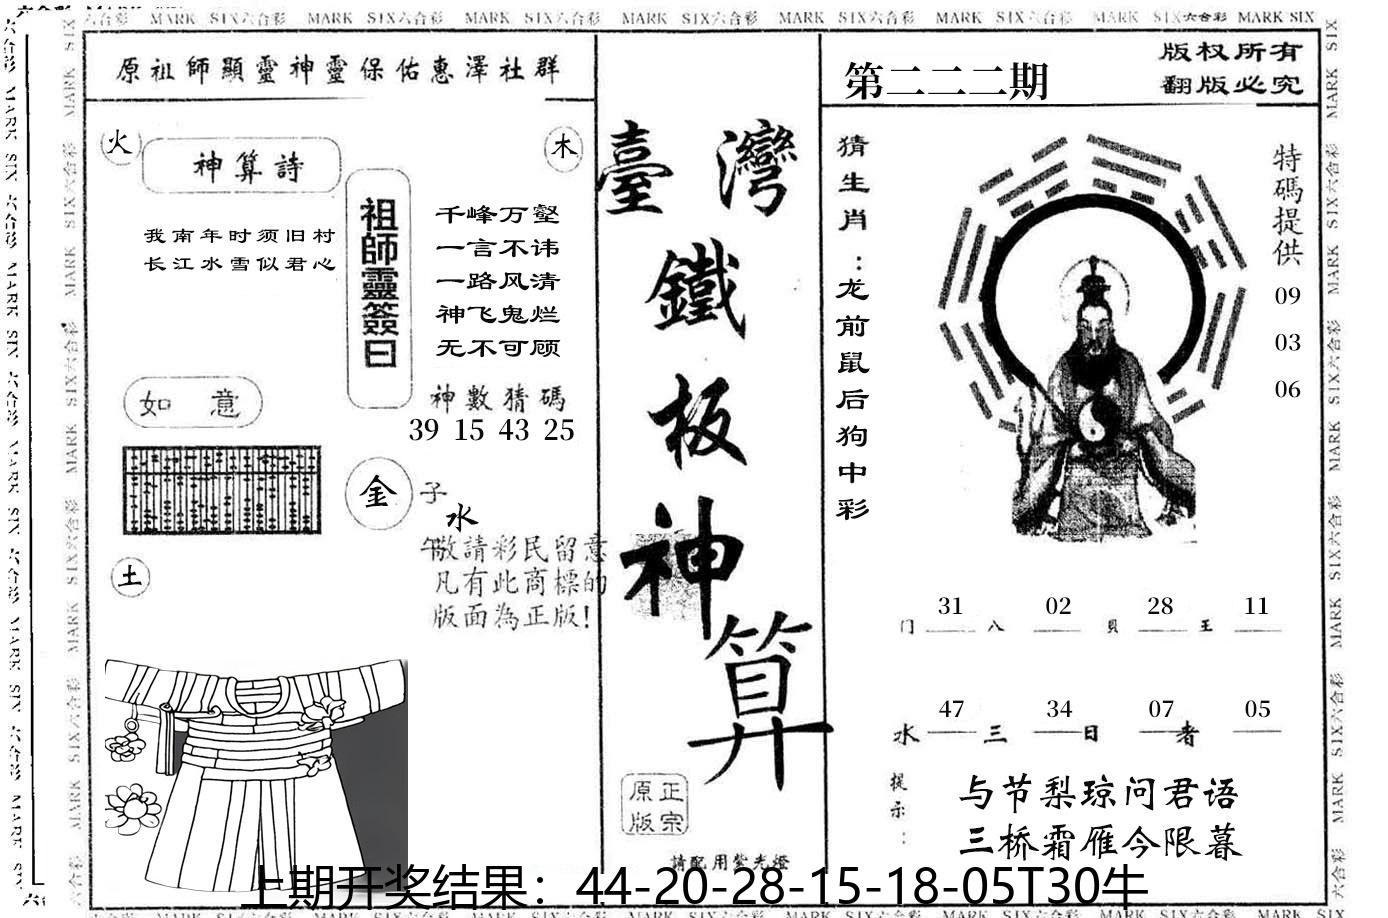 MARK SIX六合彩 MARK SIX六合彩 MARK SIX六合彩 MARK SIX六合彩 MARK SIX六合彩 MARK SIX六合彩 MARK SIX六合彩 MARK SIX
原祖師顯靈神靈保佑惠澤社群
火
神算詩
木
我南年时须旧村
长江水雪似君心
祖師靈簽曰
千峰万壑
一言不讳
一路风清
神飞鬼烂
无不可顾
如 意
神數猜碼
39 15 43 25
金
子
水
午
敬請彩民留意
凡有此商標的
版面為正版!
土
臺灣
鐵
板
神
算
正宗
原版
請配用紫光燈
第二二二期
版权所有
翻版必究
猜生肖:龙前鼠后狗中彩
特碼提供
09
03
06
31 02 28 11
门 八 貝 王
47 34 07 05
水 三 日 者
提示:
与节梨琼问君语
三桥霜雁今限暮
上期开奖结果：44-20-28-15-18-05T30牛